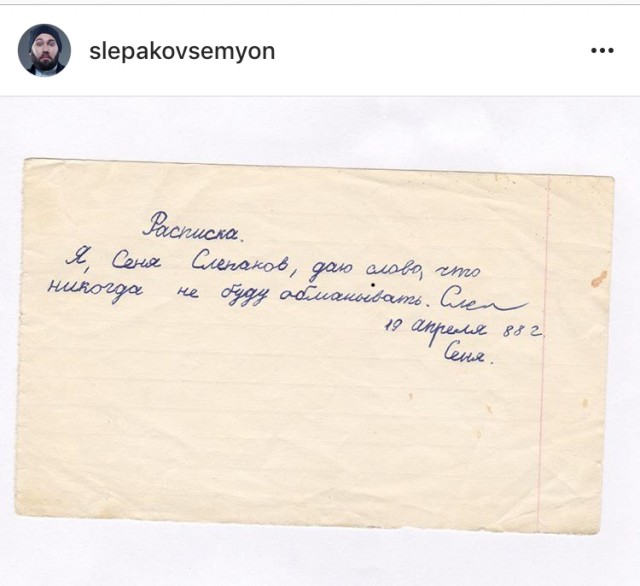 slepakovsemyon
Расписка.
Я, Сеня Слепаков, даю слово, что
никогда не буду обманывать. Слеп
19 апреля 88 г.
Сеня.